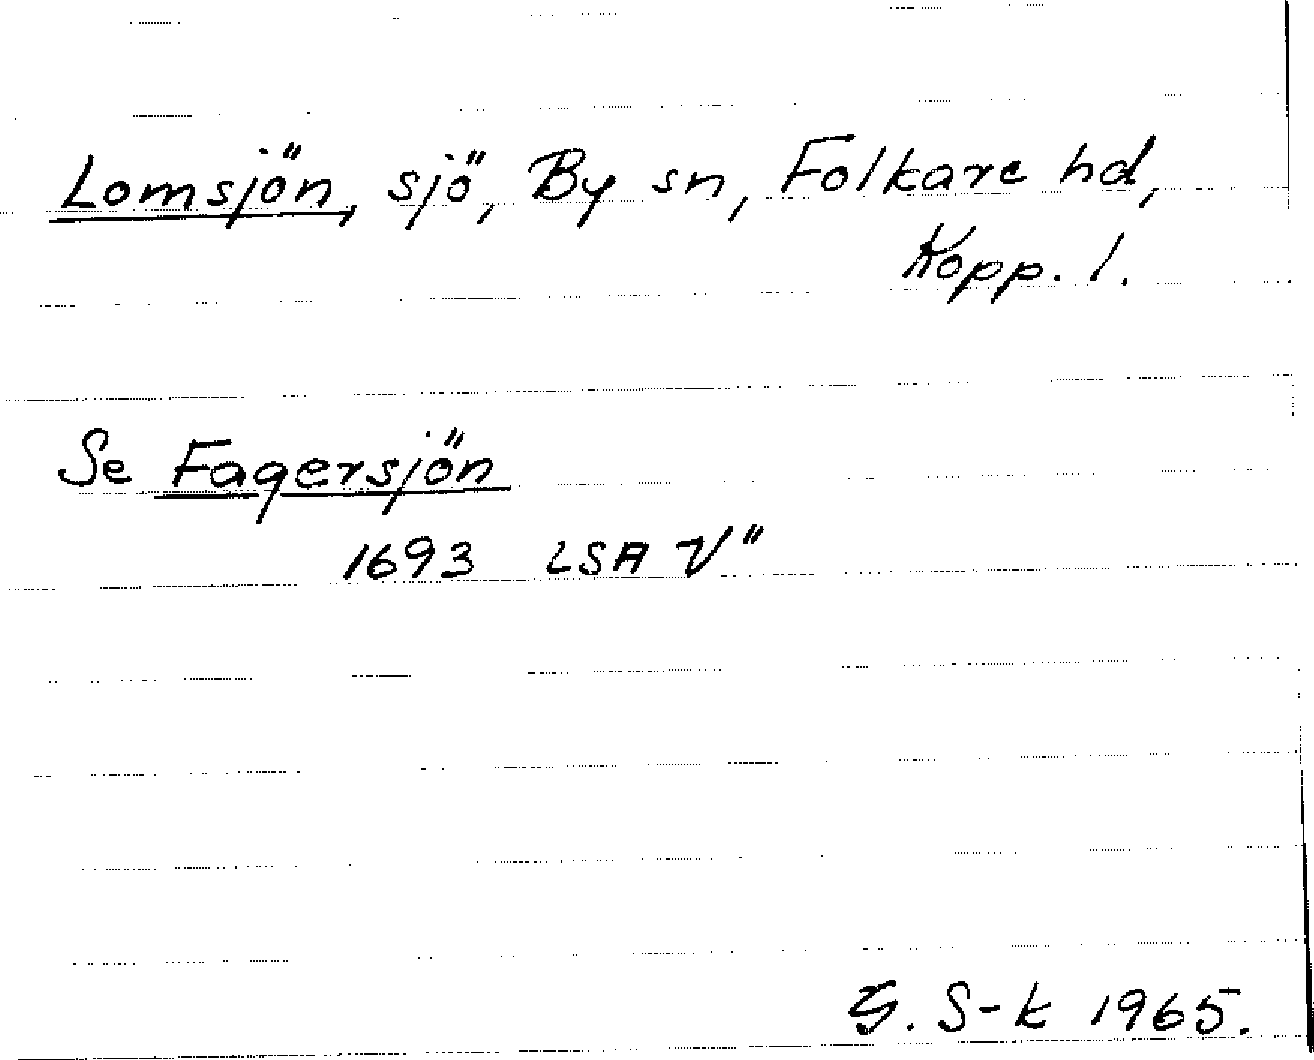 Lomsjön, sjö, By sn, Folkare hd,
Kopp. l.
Se Fagersjön
1693 LSA V"
G. S-k 1965.